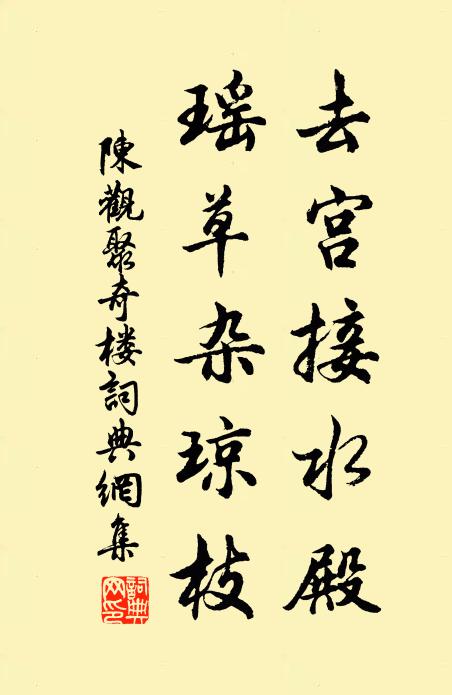 去宫接水殿
瑶草杂琼枝
陳觀聚奇楼詞典網集
詞典网印